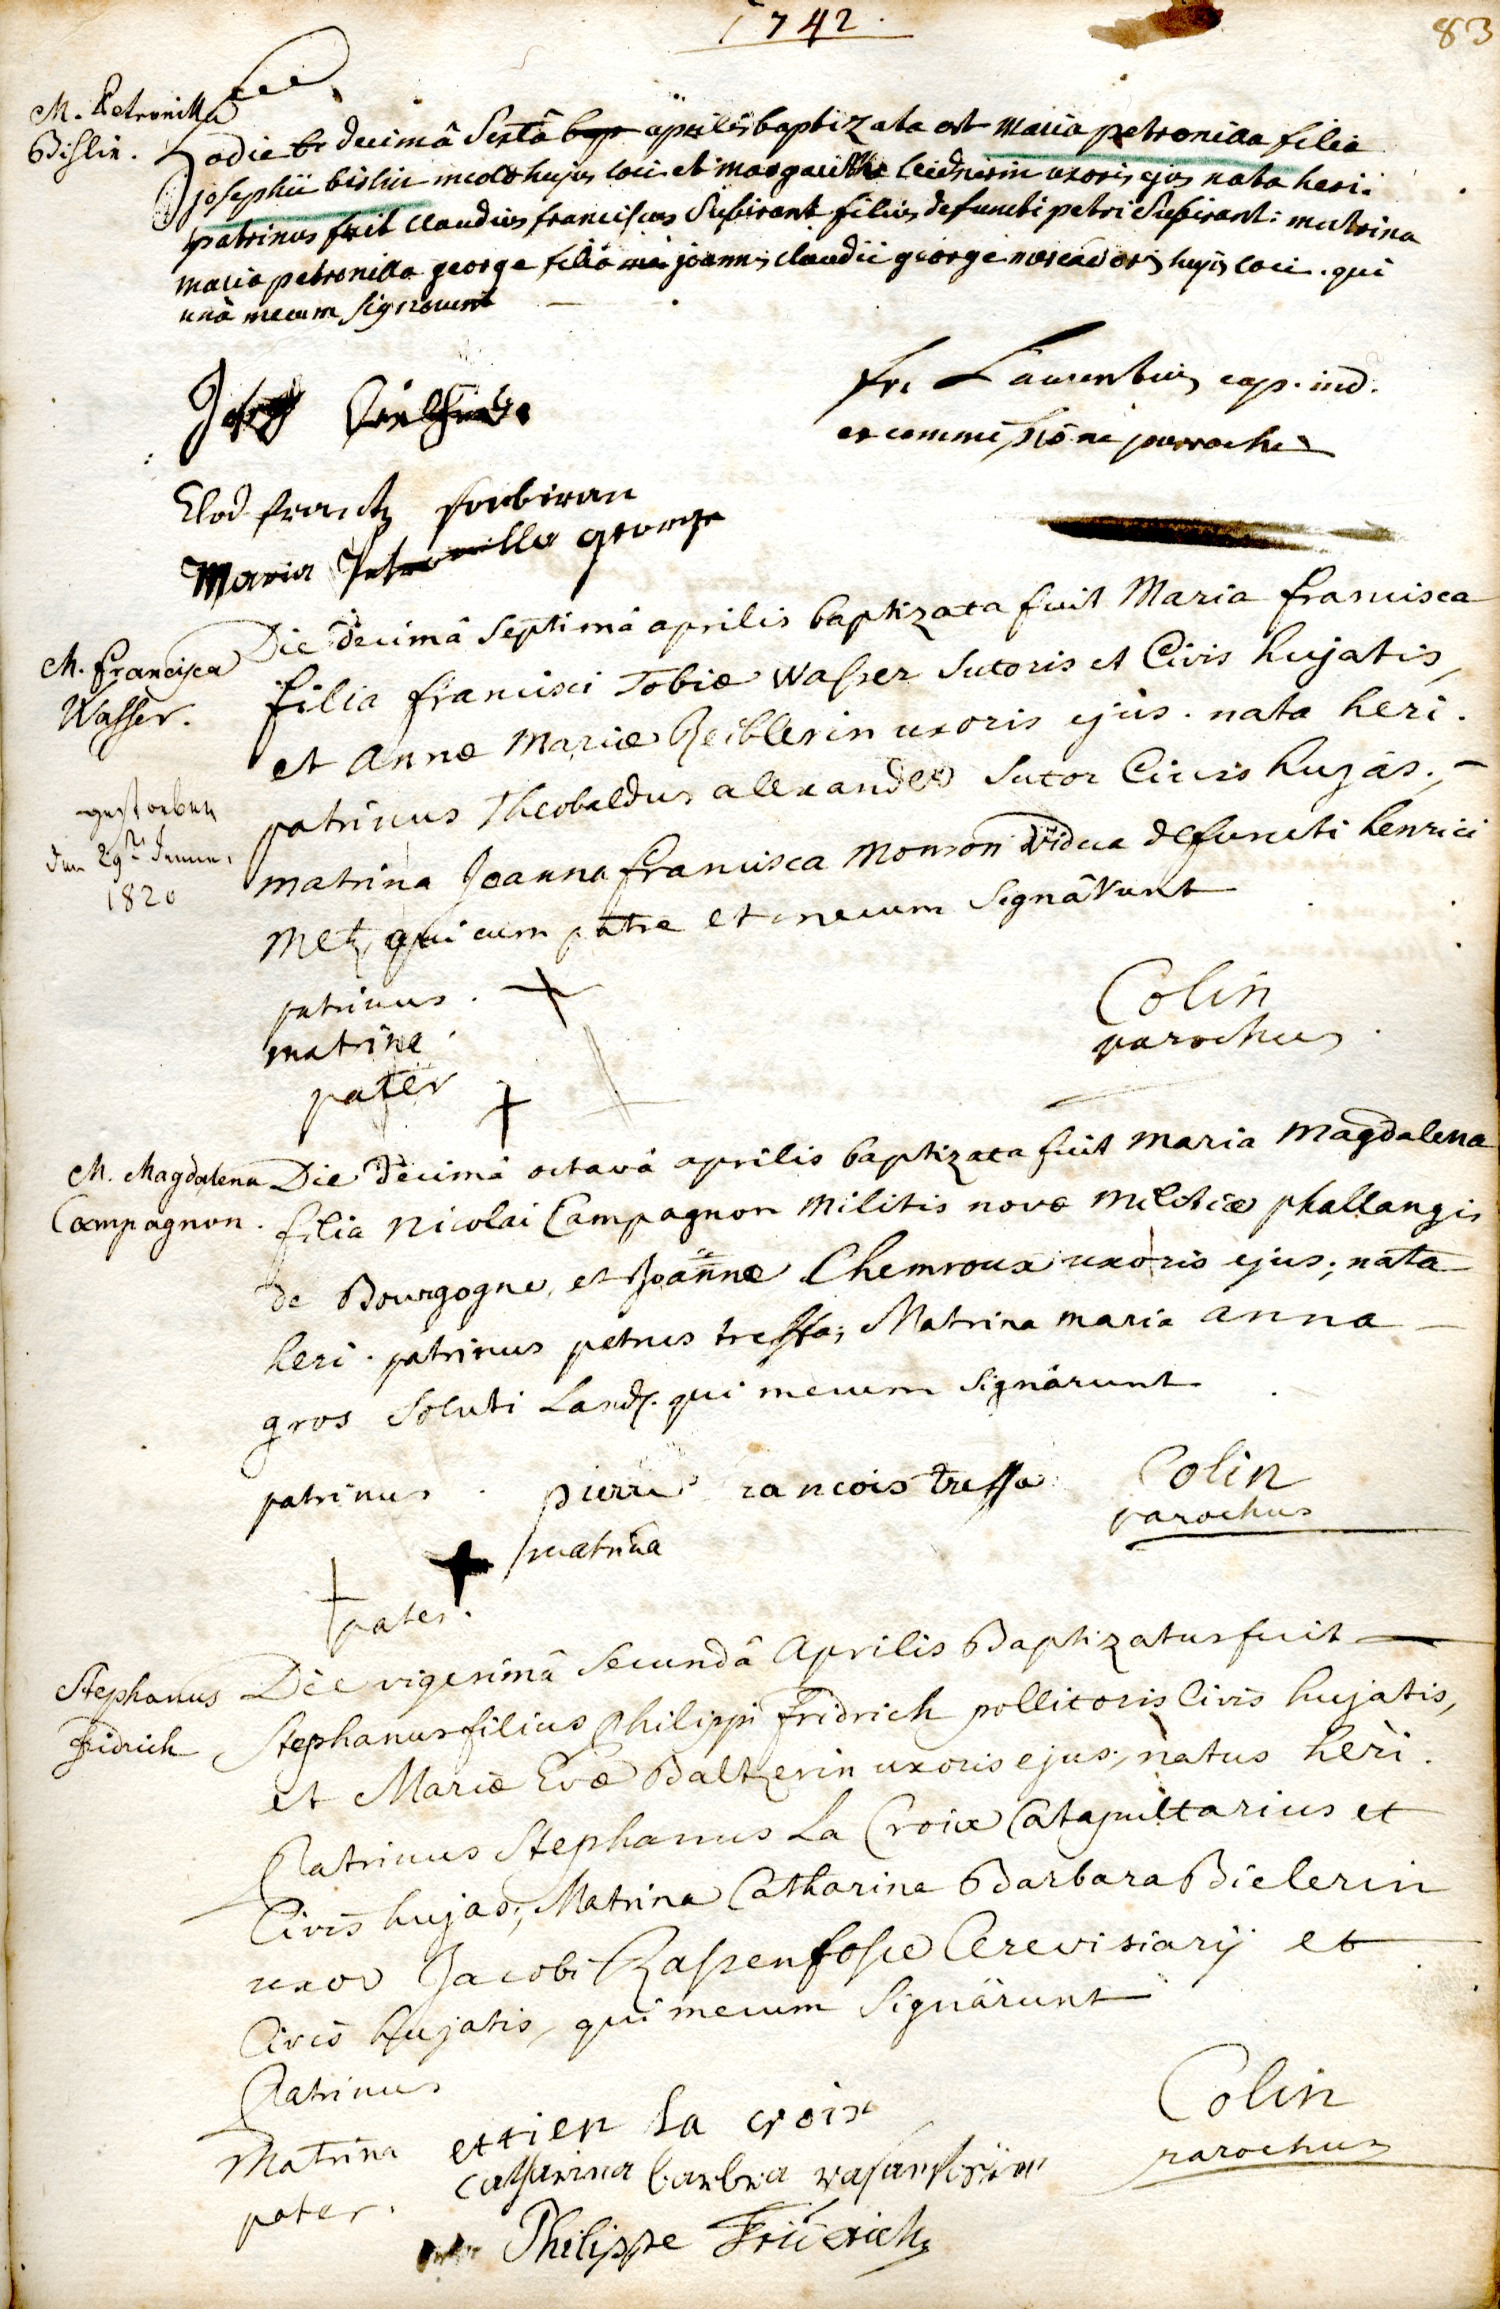 1742.
83
M. Petronilla
Bislin.
hodie decimâ sextâ aprilis baptizata est maria petronilla filia
josephi bislin incolæ hujus loci et margarithæ uxoris ejus nata heri:
patrinus fuit claudius franciscus Subirant filius defuncti petri Subirant: matrina
maria petronilla george filia joannis claudii george mercatoris hujus loci. qui
unâ mecum signarunt
fr. Laurentius cap. ind.
ex commissione parochi
Clod frantz soubiran
Maria Petronilla george
M. Francisca
Wasser.
gestorben
den 29ten
1820
Die decimâ septimâ aprilis baptizata fuit Maria francisca
filia francisci Tobiæ Wasser Sutoris et Civis hujatis,
et Annæ Mariæ Zeiblerin uxoris ejus. nata heri.
patrinus Theobaldus alexander Sutor Civis hujas.,
matrina Joanna francisca Monson vidua defuncti henrici
Metz, qui cum patre et mecum Signârunt
patrinus.
matrina.
pater
Colin
parochus
M. Magdalena
Campagnon.
Die decimâ octavâ aprilis baptizata fuit maria Magdalena
filia Nicolai Campagnon militis novæ militiæ phallangis
de Bourgogne, et Joannæ Chemroux uxoris ejus; nata
heri. patrinus petrus tressa; Matrina maria anna
gros Soluti Land. qui mecum signârunt
patrinus. pierre rancois tressa
matrina
pater.
Colin
parochus
Stephanus
Fridrich
Die vigesimâ Secundâ Aprilis Baptizatus fuit
Stephanus filius Philippi Fridrich pollitoris Civis hujatis,
et Mariæ Evæ Baltzerin uxoris ejus; natus heri.
Patrinus Stephanus La Croix Catapultarius et
Civis hujas; Matrina Catharina Barbara Bielerin
uxor Jacobi Rassenfosse Cerevisiarij et
Civis hujatis, qui mecum Signârunt
Patrinus
ettien La croix
Matrina
Catharina barbra
pater.
Philippe Friderich
Colin
parochus